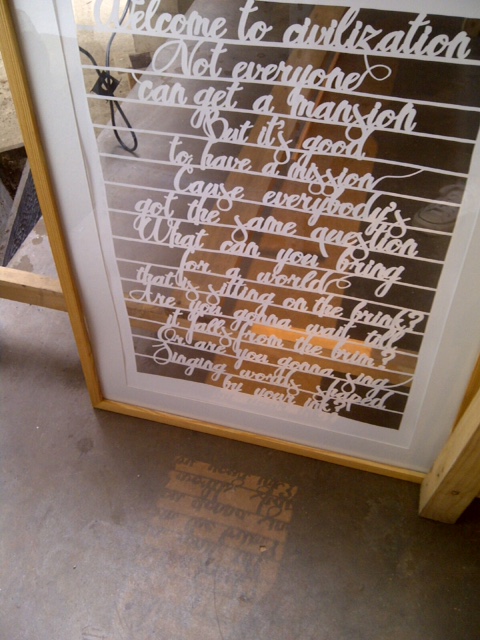 Welcome to civilization
Not everyone
can get a mansion
But it's good
to have a mission
Cause everybody's
got the same question
What can you bring
for a world
that's sitting on the brink?
Are you gonna wait till
it falls from the brim?
Or are you gonna sing
Singing words shaped
by your ink?